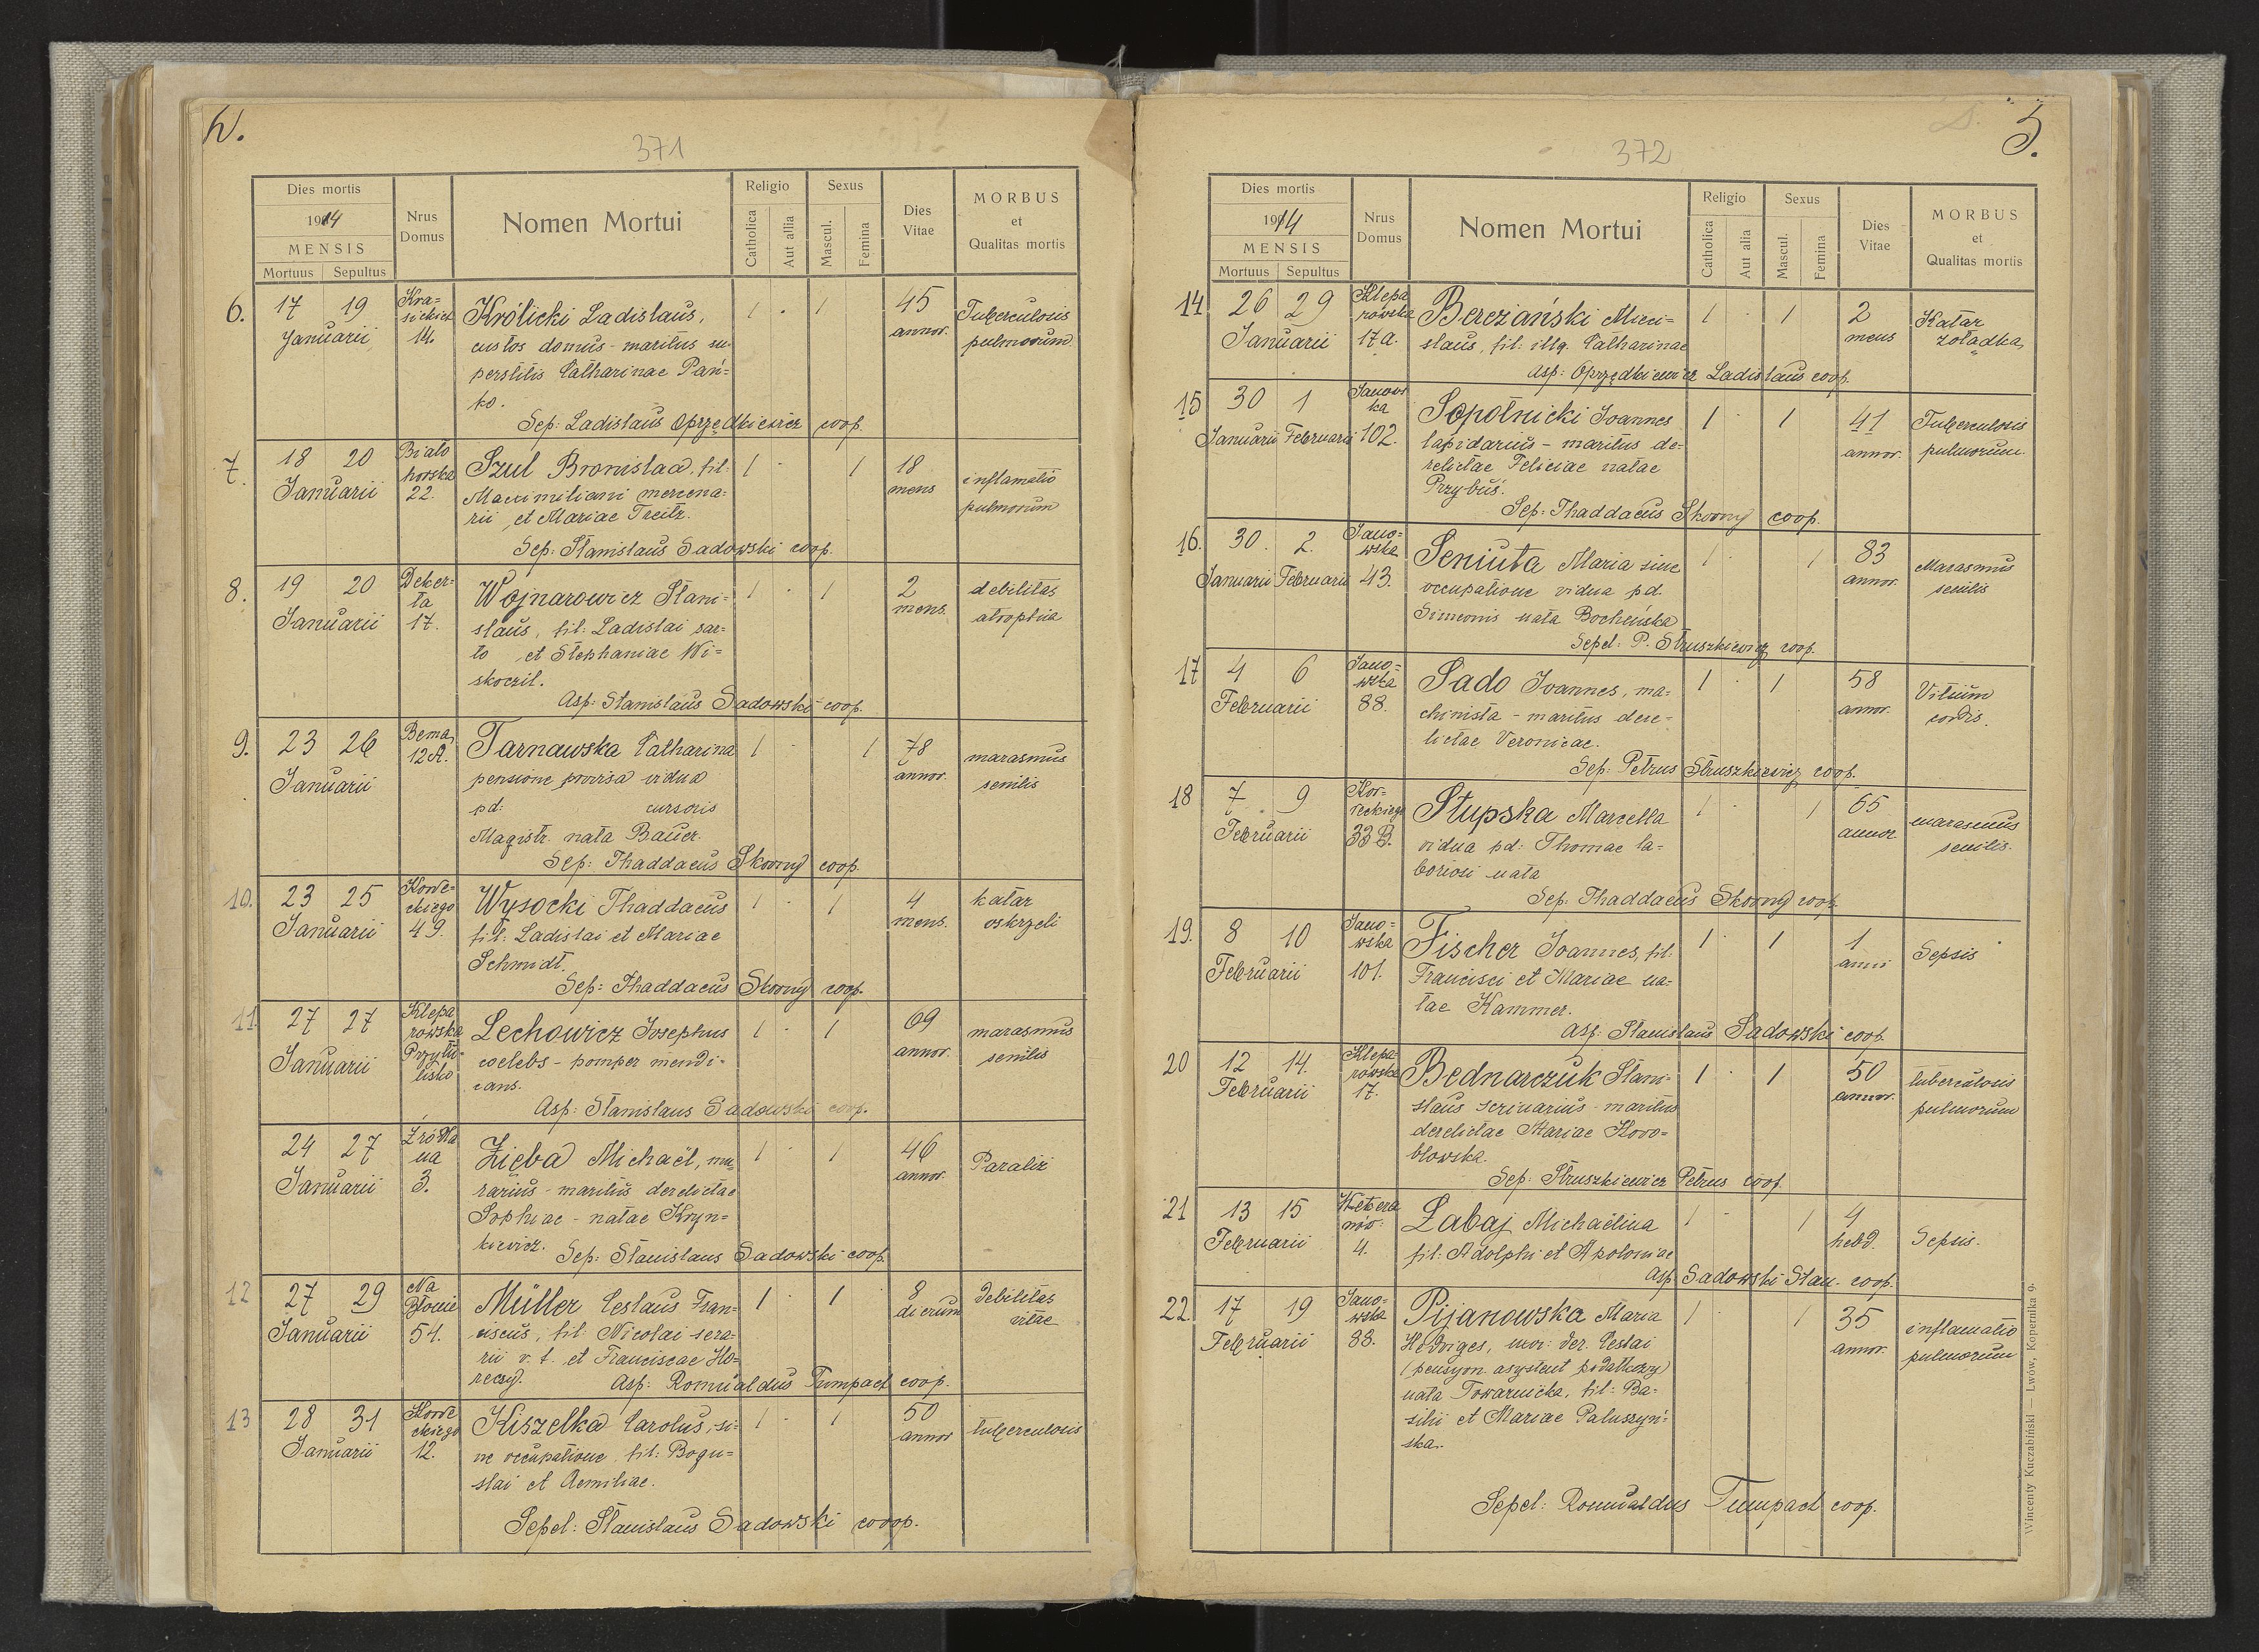 4.
371
Dies mortis
1914
MENSIS
Mortuus Sepultus
Nrus
Domus
Nomen Mortui
Religio
Catholica
Aut allia
Sexus
Mascul.
Femina
Dies
Vitae
MORBUS
et
Qualitas mortis
6. 17 19 Kra=
sickich
Januarii 14.
Królicki Ladislaus,
custos domus - maritus su-
perstitis Catharinae Pań=
ko.
1 . 1
45
annor.
Tuberculosis
pulmonum
Sep: Ladislaus Oprzędkiewicz coop.
7. 18 20 Biało
horska
Januarii 22.
Szul Bronislaa, fil:
Maximiliani mercena=
rii et Mariae Treitz.
1 . 1
18
mens
inflamatio
pulmonum
Sep: Stanislaus Sadowski coop.
8. 19 20 Deker=
ta
Januarii 17.
Wojnarowicz Stani=
slaus, fil: Ladislai sar=
to et Stephaniae Wi=
skoczil.
1 . 1
2
mens.
debilitas
atrophia
Asp: Stanislaus Sadowski coop.
9. 23 26 Bema
12A.
Januarii
Tarnawska Catharina
pensione provisa vidua
pd: cursoris
Magistr. nata Bauer.
1 . 1
78
annor.
marasmus
senilis
Sep: Thaddaeus Skorny coop.
10. 23 25 Kord=
ckiego
Januarii 49.
Wysocki Thaddaeus
fil: Ladislai et Mariae
Schmidt.
1 . 1
4
mens.
katar
oskrzeli
Sep: Thaddaeus Skorny coop.
11. 27 27 Klepa
rowska
Januarii Przytu=
lisko
Lechowicz Josephus
coelebs - pomper mendi-
cans.
1 . 1
69
annor.
marasmus
senilis
Asp: Stanislaus Sadowski coop.
24 27 Źródla
na
Januarii 3.
Zięba Michaël, mu,
rarius - maritus derelictae
Sophiae - natae Kryn=
kiewicz.
1 . 1
46
annor.
Paraliż
Sep: Stanislaus Sadowski coop.
12 27 29 Na
Błonie
Januarii 54.
Müller Ceslaus Fran=
ciscus, fil: Nicolai sera=
rii v. t. et Franciscae Ho=
reczy.
1 . 1
8
dierum
debilitas
vitae
Asp: Romualdus Tumpach coop.
13 28 31 Kord
ckiego
Januarii 12.
Kiszelka Carolus, si=
ne occupatione, fil: Bogu=
slai et Aemiliae.
1 . 1
50
annor
tuberculosis
Sepel: Stanislaus Sadowski cooop.
5.
372
Dies mortis
1914
MENSIS
Mortuus Sepultus
Nrus
Domus
Nomen Mortui
Religio
Catholica
Aut alia
Sexus
Mascul.
Femina
Dies
Vitae
MORBUS
et
Qualitas mortis
14 26 29 Klepa
rowska
Januarii 17a.
Bereżański Mieci=
slaus, fil: illg. Catharinae
1 . 1
2
mens
Katar
żołądka,
Asp: Oprzędkiewicz Ladislaus coop.
15 30 1 Janows
ka
Januarii Februarii 102.
Sopotnicki Joannes
lapidarius - maritus de=
relictae Feliciae natae
Przybuś.
1 . 1
41
annor.
Tuberculosis
pulmorum
Sep: Thaddaeus Skorny coop.
16. 30. 2. Jano=
wska
Januarii Februarii 43.
Seniuta Maria sine
occupatione vidua pd.
Simeonis nata Bocheńska
1 . 1
83
annor.
Marasmus
senilis
Sepel: P. Struszkiewicz coop.
17 4 6 Jano=
wska
Februarii 88.
Sado Joannes, ma=
chinista - maritus dere=
lictae Veronicae.
1 . 1
58
annor.
Vitium
cordis.
Sep: Petrus Struszkiewicz coop.
18 7 9 Kor=
deckiego
Februarii 33 B.
Stupska Marcella
vidua pd: Thomae la=
boriosi nata
1 . 1
65
annor
marasmus
senilis.
Sep: Thaddaeus Skorny coop.
19. 8 10 Jano=
wska
Februarii 101.
Fischer Joannes, fil:
Francisci et Mariae na=
tae Kammer.
1 . 1
1
anni
Sepsis
Asp: Stanislaus Sadowski coop.
20 12 14. Klepa
rowska
Februarii 17.
Bednarczuk Stani=
slaus scrinarius - maritus
derelictae Mariae Howo=
blowska.
1 . 1
50
annor.
tuberculosis
pulmorum
Sep: Struszkiewicz Petrus coop.
21 13 15 Wetera
nów
Februarii 4.
Łabaj Michaëlina
fil: Adolphi et Apoloniae
1 . 1
4
hebd.
Sepsis.
Asp Sadowski Stan. coop.
22. 17 19 Jano=
wska
Februarii 88.
Pijanowska Maria
Hedviges, uxor: der. Ceslai
(pensyon. asystent podatkowy)
nata Towarnicka, fil: Ba=
silii et Mariae Paluszyń=
ska.
1 . 1
35
annor.
inflamatio
pulmorum
Sepel: Romualdus Tumpach coop.
Wincenty Kuczabiński — Lwów, Kopernika 9.